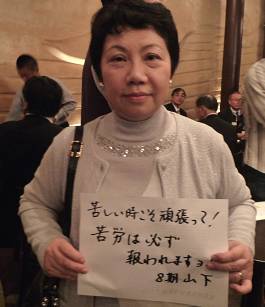 苦しい時こそ頑張って!
苦労は必ず
報われますョ
8期 山下